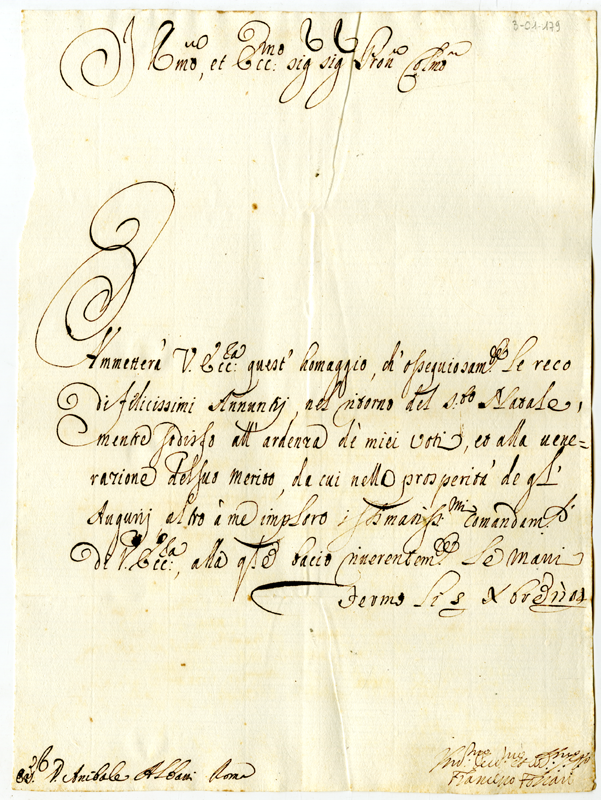 3-01-179
Ill.mo, et Ecc.mo sig sig Pron Colmo
Ammetterà V. Ecc.za quest' homaggio, ch' ossequiosam.te Le reco
di felicissimi Annuntij, nel ritorno del S.to Natale,
mentre sodisfo all' ardenza de miei voti, et alla vene=
razione del suo merito, da cui nella prosperità de gl'
Augurij altro à me imploro i stimatiss.mi comandam.ti
di V. Ecc.za, alla q.le bacio riverentem.te Le mani
Fermo Li 5 Xbre 1704
D. Anibale Albani Roma
Francesco